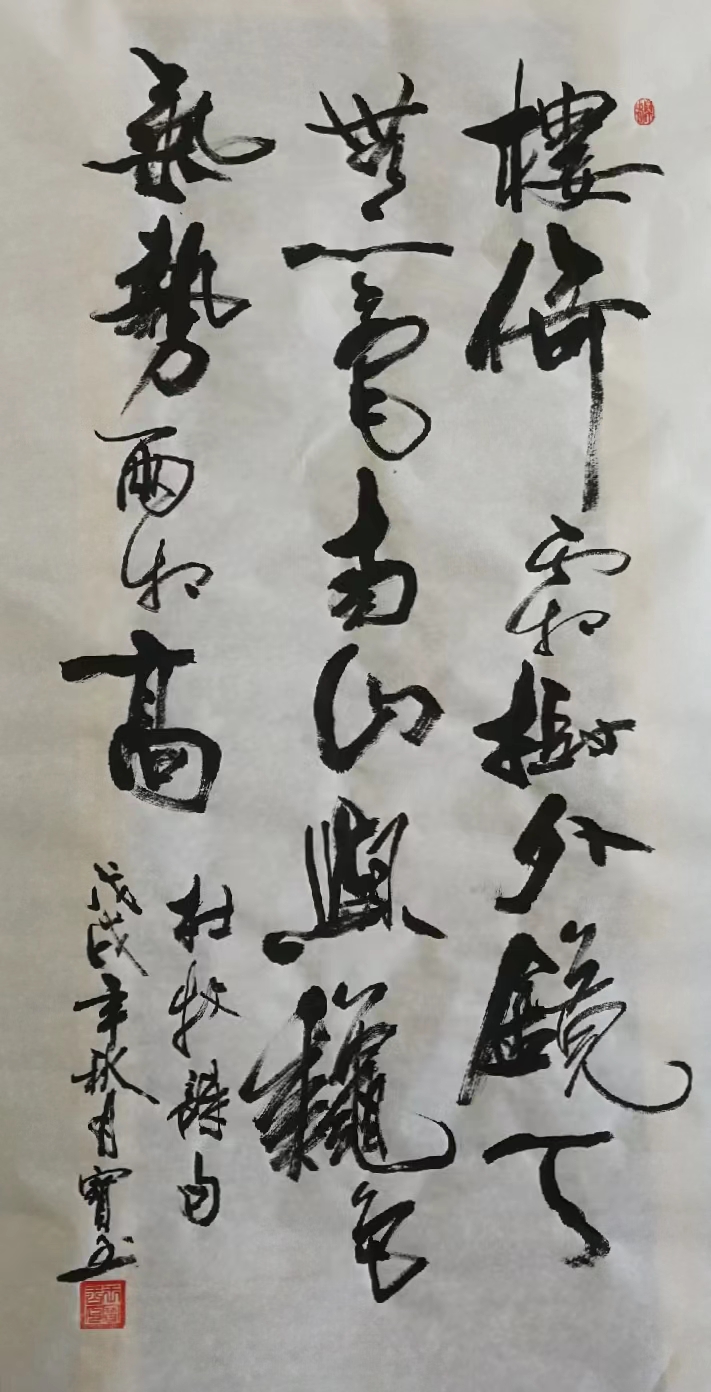 樓倚霜樹外鏡天
無一毫南山與龝色
氣勢兩相高
杜牧詩句
戊戌年秋月寶书